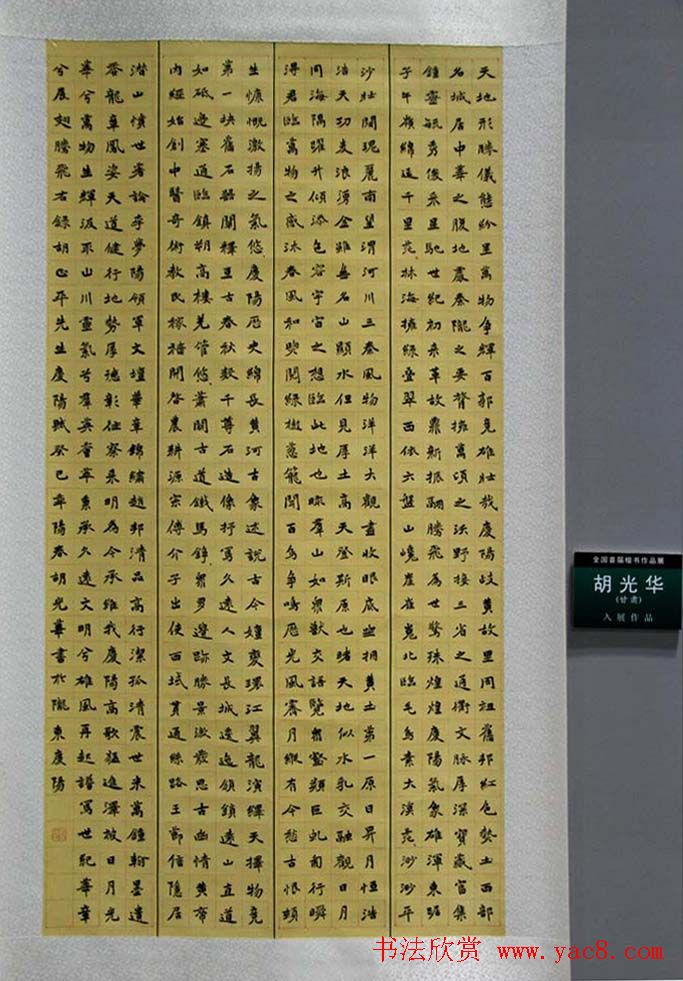 天地形胜仪态纷呈万物争辉百郭竞雄壮哉庆阳岐黄故里周祖旧邦红色热土西部
名城居中华之腹地震秦陇之要膂拥万顷之沃野接三省之通衢文脉厚深宝藏富集
钟灵毓秀俊采星驰世纪初来革故鼎新振翮腾飞为世惊殊煌煌庆阳气象雄浑东踞
子午岭绵延千里茫林海拥绿叠翠西依六盘山峻崖崔嵬北临毛乌素大漠茫沙沙平
沙壮阔瑰丽南望渭河川三秦风物洋洋大观尽收眼底幽拥黄土第一原日昇月恒浩
浩天功麦浪涌金虽无名山显水但见厚土高天登斯原也睹天地似水乳交融观日月
同海隅跃升倾添色容宇宙之想临此地也眺群山如众兽交语览沟壑类巨虬匍行瞬
得君临万物之感沐春风和煦阅绿树葱笼闻百鸟争鸣历光风霁月纵有今愁古恨顿
生慷慨激扬之气悠庆阳历史绵长黄河古象述说古今嬗变环江翼龙演绎天择物竞
第一块旧石器阐释亘古春秋数千尊石造像抒写久远人文长城逶迤领锁远山直道
如砥逸塞通临镇朔高楼羌管悠萧关古道铁马铮众多边跡胜景激发思古幽情黄帝
内经始创中医奇术教民稼穑开启农耕源宗傅介子出使西域贯通丝路王节信隐居
潜山愤世著论李梦阳领军文坛华章锦绣赵邦清品高行洁孤清震世米万钟翰墨遗
香龙章凤姿天道健行地势厚德彰往察来明为今承维我庆阳高歌猛进泽被日月光
华兮万物生辉泒不山川灵气兮群英荟萃秉承久远文明兮雄风再起谱写世纪华章
兮展翅腾飞右录胡心平先生庆阳赋癸巳年阳春胡光华书於陇东庆阳
全国首届楷书作品展
胡光华
(甘肃)
入展作品
书法欣赏 www.yac8.com